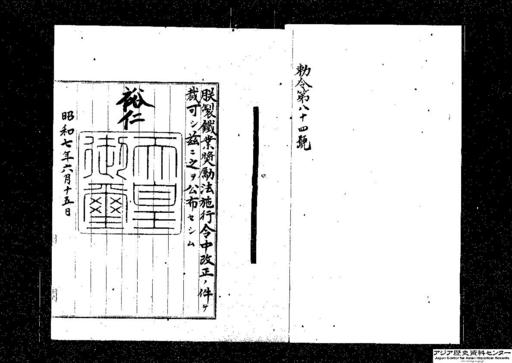 勅令第八十四號
朕製鐵業奬勵法施行令中改正ノ件ヲ
裁可シ茲ニ之ヲ公布セシム
裕仁
天皇
御璽
昭和七年六月十五日
アジア歴史資料センター
Japan Center for Asian Historical Records